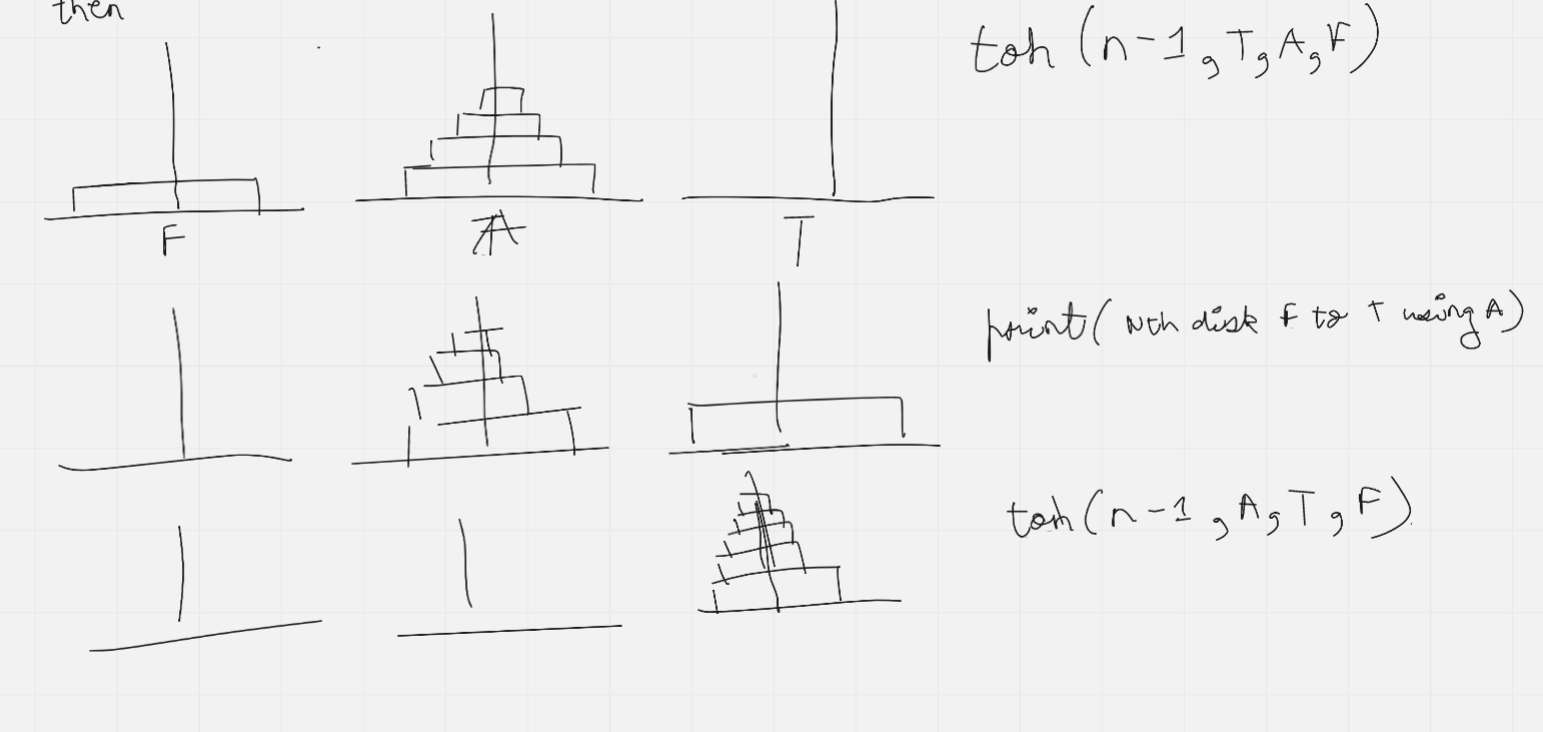 then
toh (n-1, T, A, F)
F A T
print( Nth disk F to T using A)
toh (n-1, A, T, F)